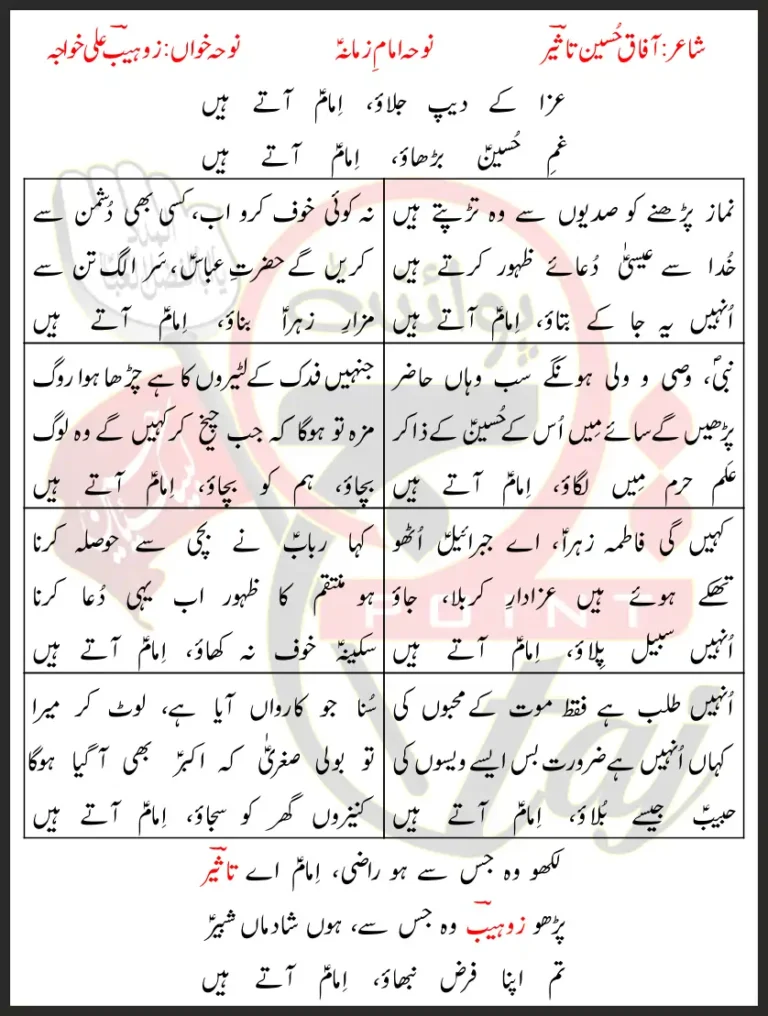 شاعر: آفاق حُسین تاثیرؔ نوحہ امامِ زمانہؑ نوحہ خواں: زوہیبؔ علی خواجہ
عزا کے دیپ جلاؤ، اِمامؑ آتے ہیں
غمِ حُسینؑ بڑھاؤ، اِمامؑ آتے ہیں
نماز پڑھنے کو صدیوں سے وہ تڑپتے ہیں
خُدا سے عیسیٰؑ دُعائے ظہور کرتے ہیں
اُنہیں یہ جا کے بتاؤ، اِمامؑ آتے ہیں
نہ کوئی خوف کرو اب، کسی بھی دُشمن سے
کریں گے حضرتِ عباسؑ، سَر الگ تن سے
مزارِ زہراؑ بناؤ، اِمامؑ آتے ہیں
نبیؐ، وصی و ولی ہونگے سب وہاں حاضر
پڑھیں گے سائے مِیں اُس کے حُسینؑ کے ذاکر
علم حرم مِیں لگاؤ، اِمامؑ آتے ہیں
جنہیں فدک کے لٹیروں کا ہے چڑھا ہوا روگ
مزہ تو ہوگا کہ جب چیخ کر کہیں گے وہ لوگ
بچاؤ، ہم کو بچاؤ، اِمامؑ آتے ہیں
کہیں گی فاطمہ زہراؑ، اے جبرائیلؑ اُٹھو
تھکے ہوئے ہیں عزادارِ کربلا، جاؤ
اُنہیں سبیل پِلاؤ، اِمامؑ آتے ہیں
کہا ربابؑ نے بچی سے حوصلہ کرنا
ہو منتقم کا ظہور اب یہی دُعا کرنا
سکینہؑ خوف نہ کھاؤ، اِمامؑ آتے ہیں
اُنہیں طلب ہے فقط موت کے محبوں کی
کہاں اُنہیں ہے ضرورت بس ایسے ویسوں کی
حبیبؑ جیسے بُلاؤ، اِمامؑ آتے ہیں
سُنا جو کارواں آیا ہے، لوٹ کر میرا
تو بولی صغریٰؑ کہ اکبرؑ بھی آ گیا ہوگا
کنیزوں گھر کو سجاؤ، اِمامؑ آتے ہیں
لکھو وہ جس سے ہو راضی، اِمامؑ اے تاثیرؔ
پڑھو زوہیبؔ وہ جس سے، ہوں شادماں شبیرؑ
تم اپنا فرض نبھاؤ، اِمامؑ آتے ہیں
پوائنٹ
POINT
taj